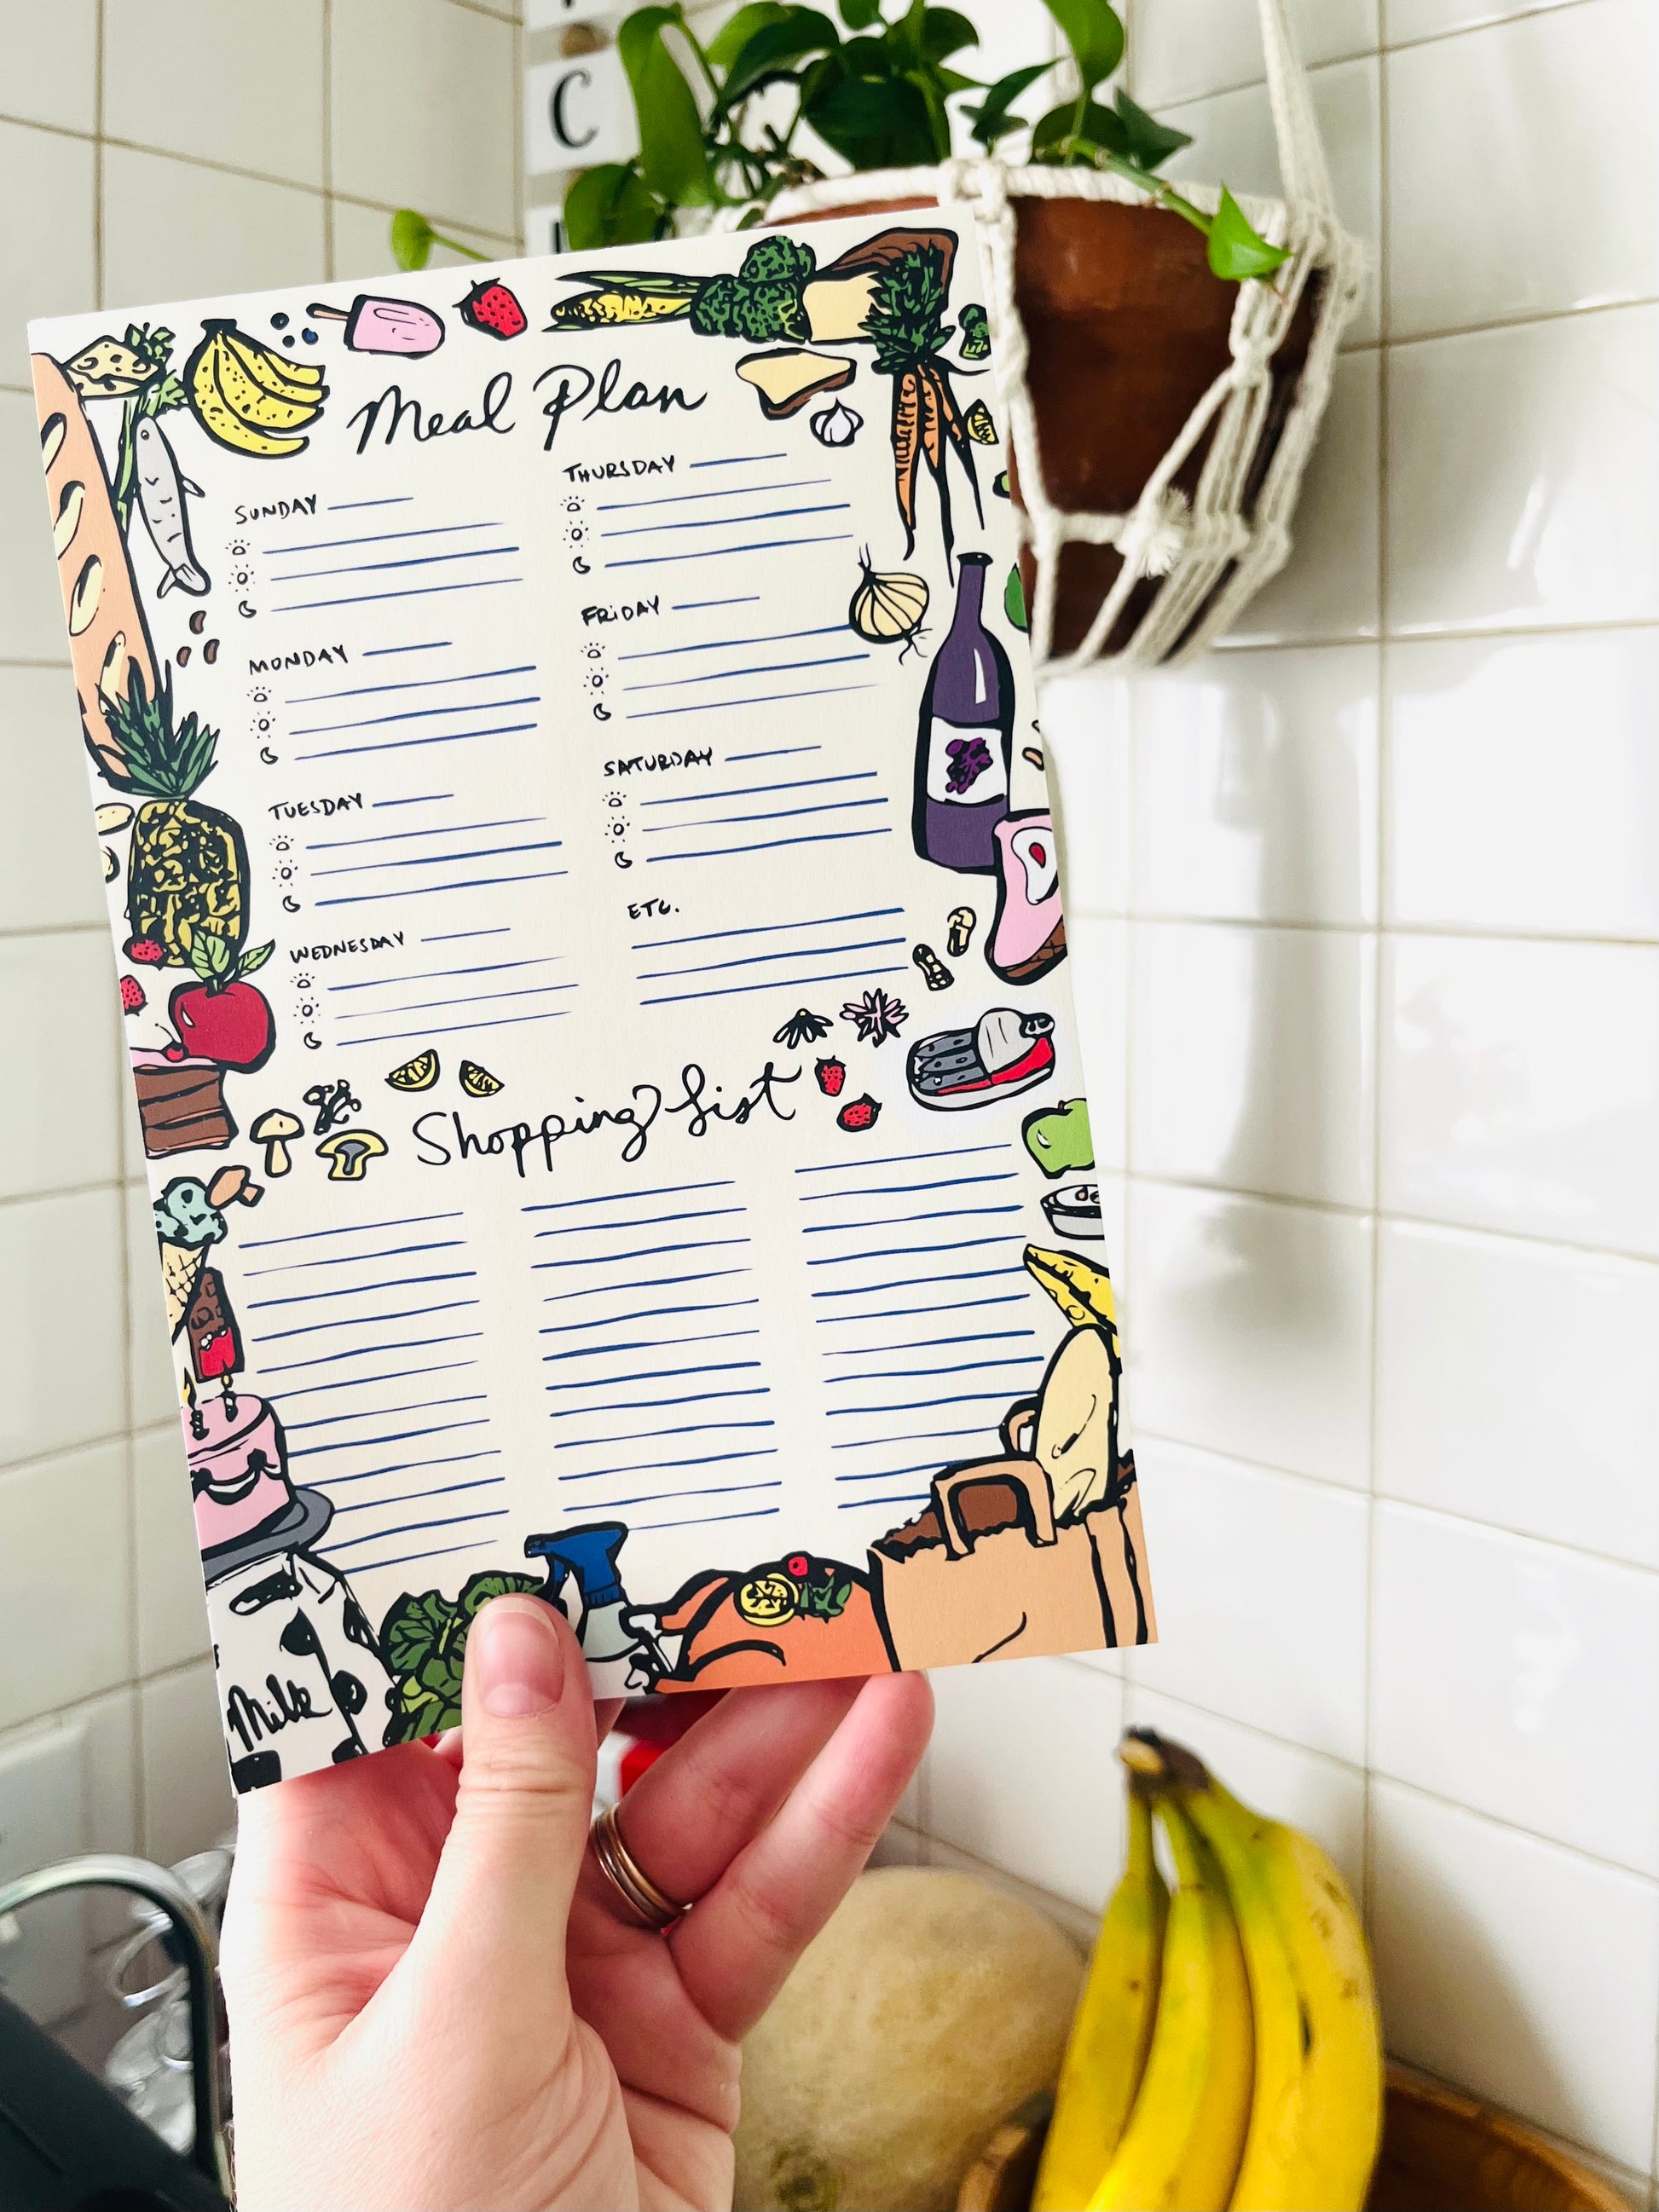 C
Meal Plan
SUNDAY
MONDAY
TUESDAY
WEDNESDAY
THURSDAY
FRiDAY
SATURDAY
ETC.
Shopping List
Milk